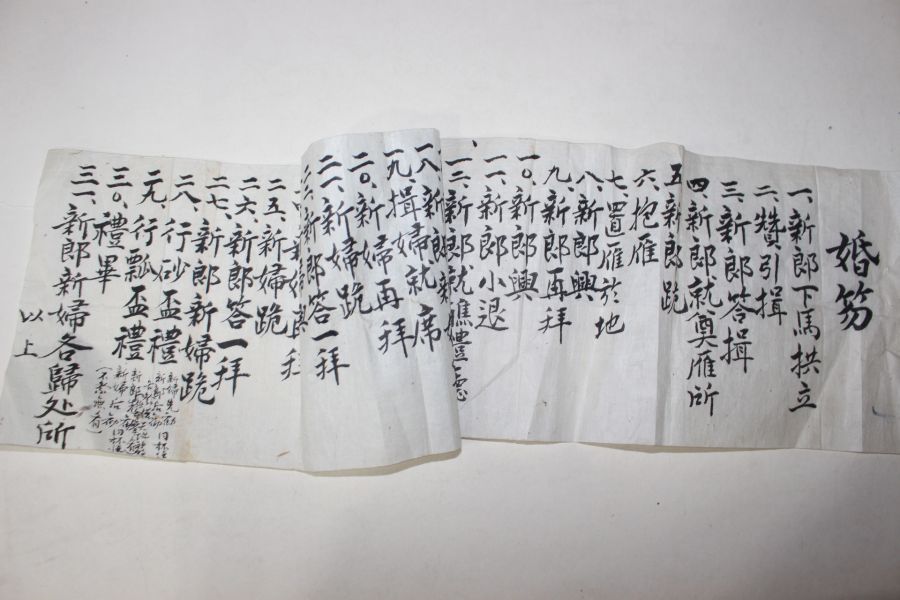 婚笏
一、新郎下馬拱立
二、贊引揖
三、新郎答揖
四、新郎就奠雁所
五、新郎跪
六、抱雁
七、置雁於地
八、新郎興
九、新郎再拜
一〇、新郎興
一一、新郎小退
一二、新郎就醮
一八、新婦就席
一九、揖婦再拜
二〇、新婦跪
二一、新婦
郎答一拜
二五、新婦跪
二六、新郎答一拜
二七、新郎新婦跪
二八、行砂盃禮
二九、行瓢盃禮
三〇、禮畢
三一、新郎新婦各歸处所
以上